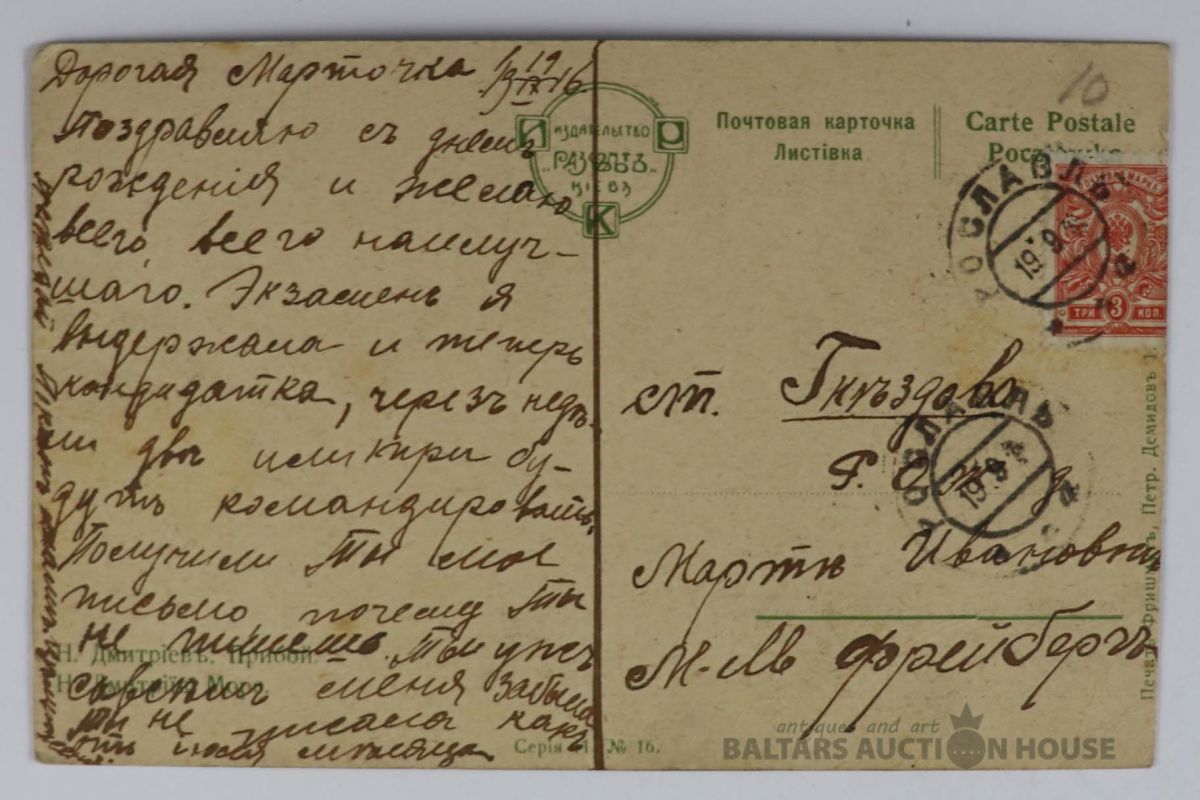 Дорогая Марточка
19 IX 16
поздравляю съ днемъ
рожденія и желаю
всего, всего наилуч-
шаго. Экзаменъ я
выдержала и теперь
кандидатка, черезъ недѣ-
ли двѣ или три бу-
дутъ командировать.
Получили ты мое
письмо почему ты
не пишешь. Ты ужъ
совсѣмъ меня забыла
ты не писала какъ
отъ іюля мѣсяца
ИЗДАТЕЛЬСТВО
"РАЗСВѢТЪ"
КІЕВЪ
И
Р
К
Почтовая карточка
Листівка
Carte Postale
10
ПОЧТОВАЯ МАРКА
ТРИ 3 КОП.
ЯРОСЛАВЛЬ
19 9
ст. Гнѣздово
Р. О. ж д
ЯРОСЛАВЛЬ
19 9
Мартѣ Ивановнѣ
М-ль Фрейбергъ
Н. Дмитріевъ. Прибой.
Н. Дмитріїв. Море.
Серія № 16.
Печать Фришмутъ, Петр. Демидовъ
antiques and art
BALTARS AUCTION HOUSE